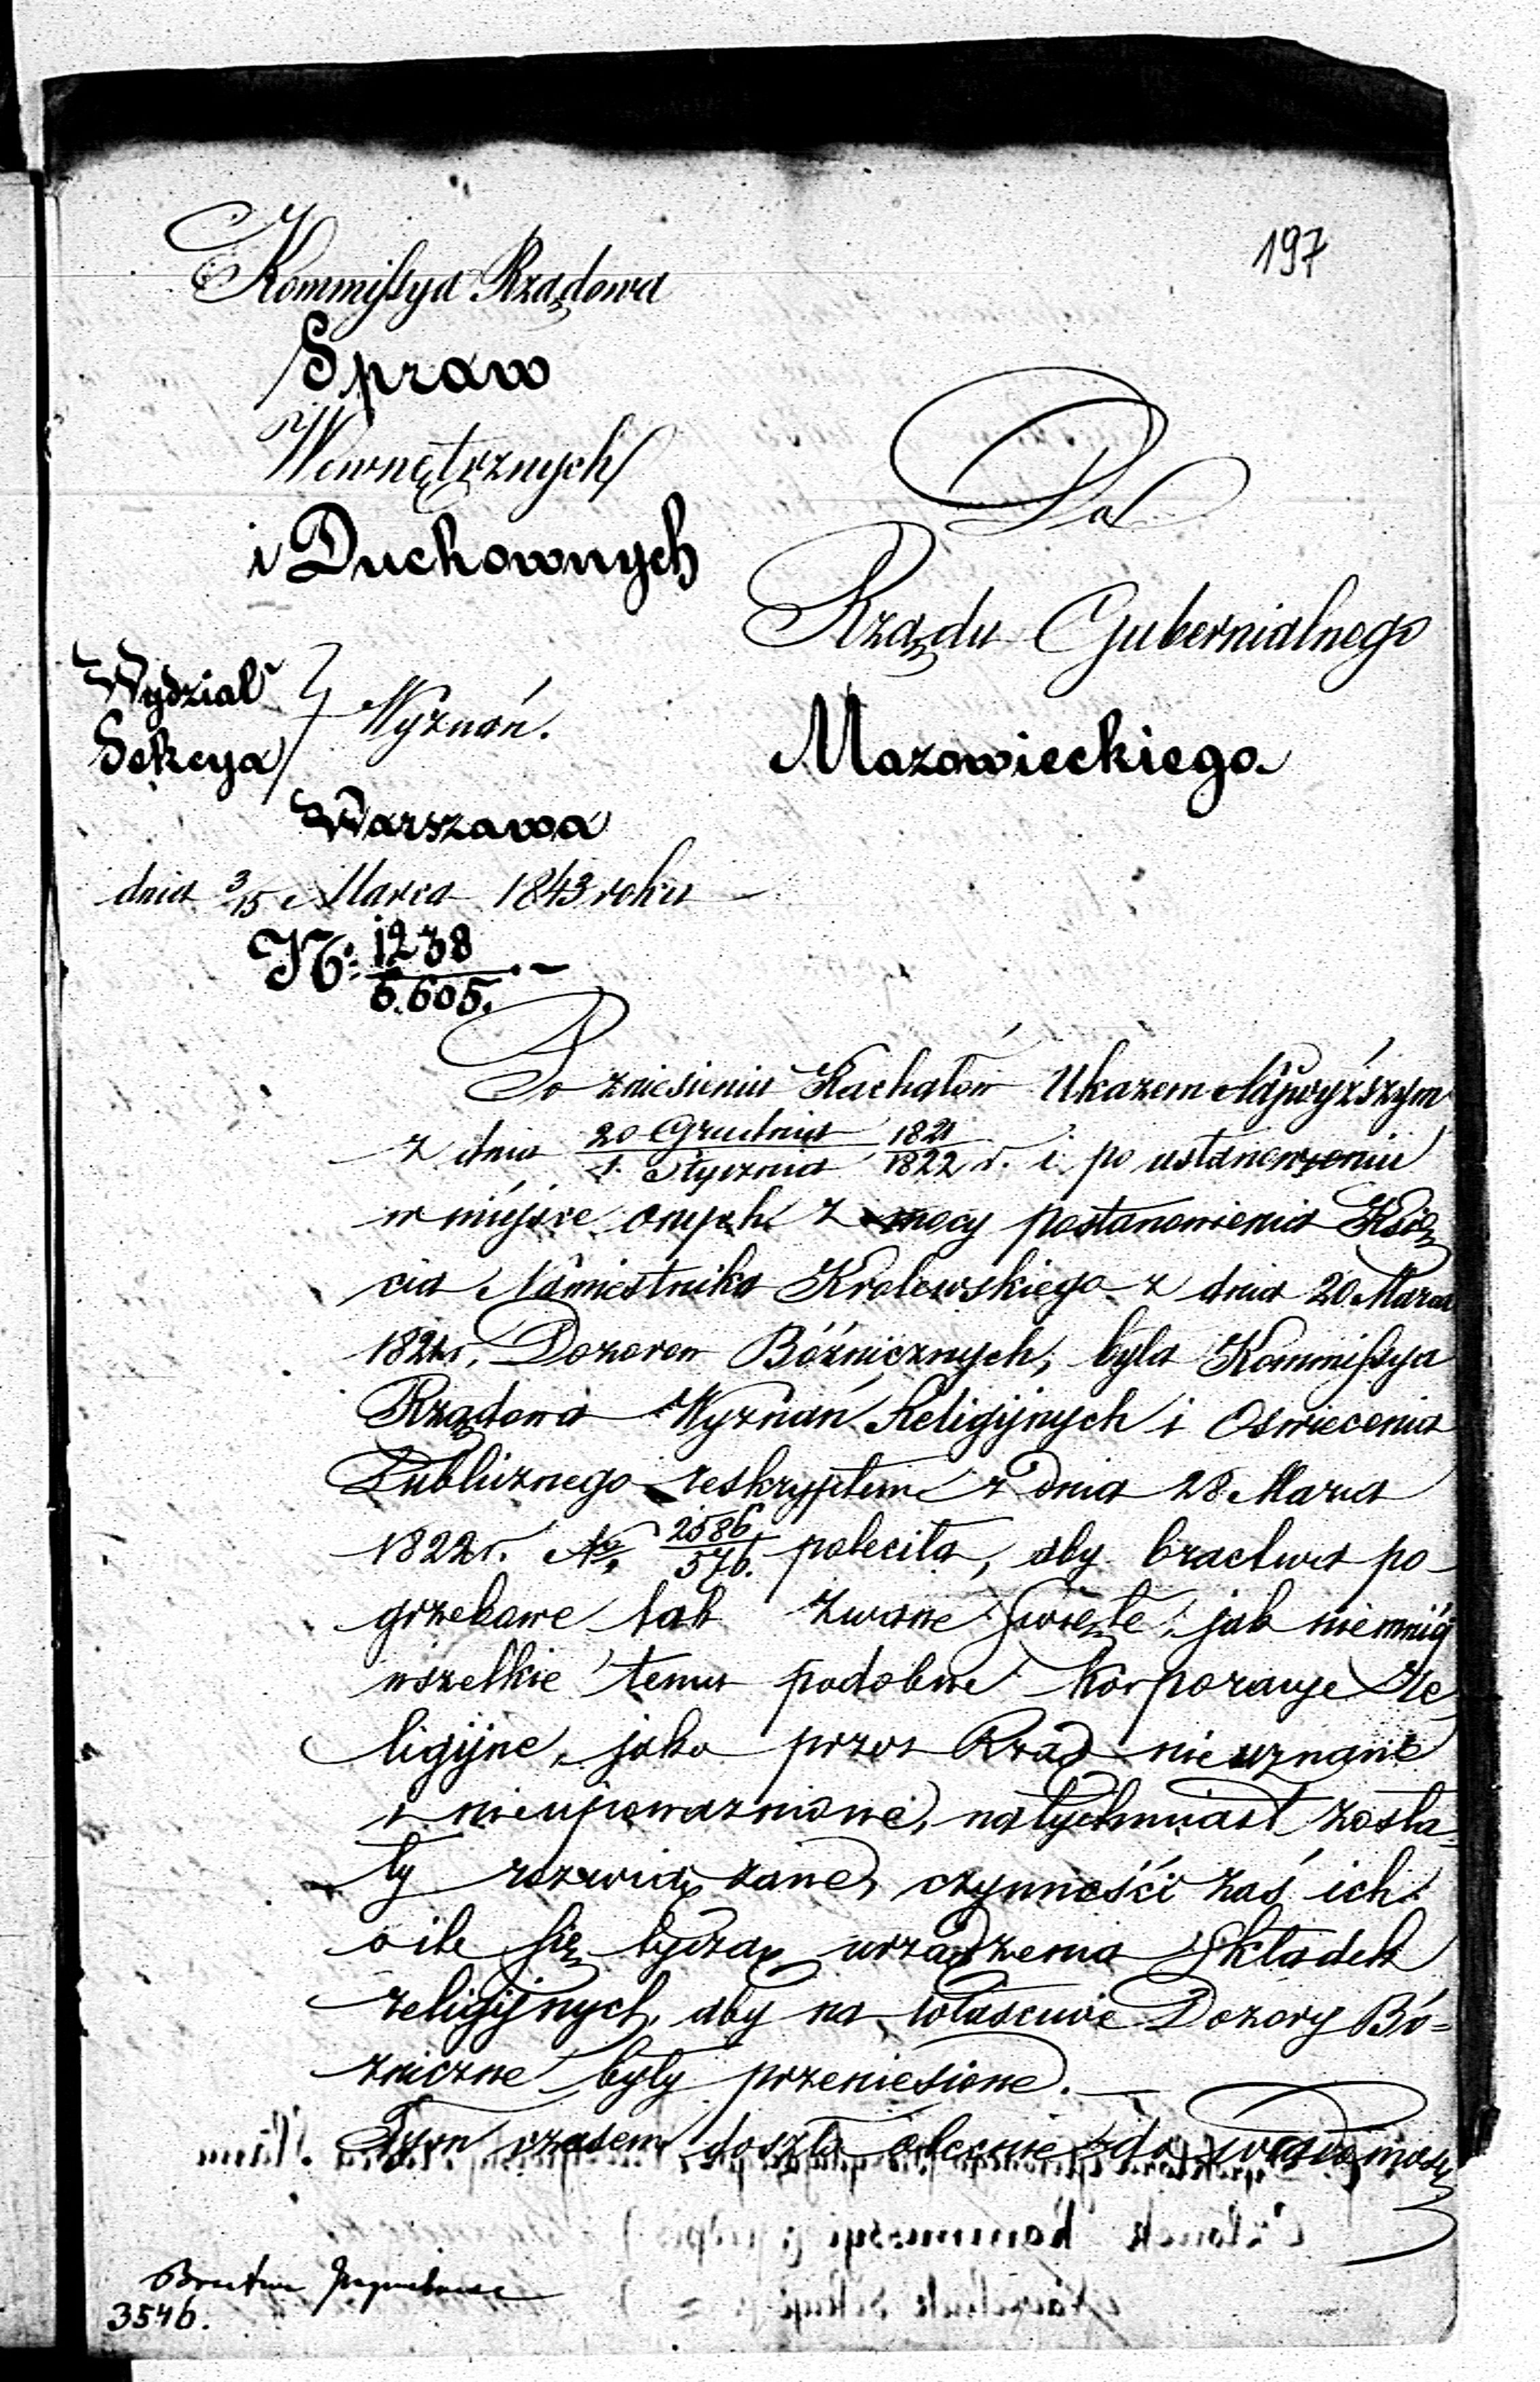 197
Kommissya Rządowa
Spraw
Wewnętrznych
i Duchownych
Do
Rządu Gubernialnego
Mazowieckiego
Wydział
Sekcya
Wyznań.
Warszawa
dnia 3/15 Marca 1843 roku
No: 1238/6.605. -
Po zniesieniu Kachałów Ukazem Najwyższym
z dnia 20 Grudnia/1. Stycznia 1821/1822 r. i po ustanowieniu
w miejsce onych z mocy postanowienia Księ
cia Namiestnika Królewskiego z dnia 20 Marca
1821 r. Dozorow Bóźnicznych, była Kommissya
Rządowa Wyznań Religijnych i Oświecenia
Publicznego reskryptem z dnia 28 Marca
1822 r. No 2586/576. poleciła, aby bractwa po-
grzebowe tak zwane Święte, jak niemniéj
wszelkie temu podobne Korporacye Re
ligijne, jako przez Rząd nie uznane
i nieupoważnione, natychmiast zosta-
ły rozwiązane, czynności zaś ich
o ile się tyczą urządzenia Składek
religijnych, aby na właściwe Dozory Bó=
źniczne były przeniesione. —
Tym czasem doszło obecnie do wiadomości
Bractwa Pogrzebowe
3546.